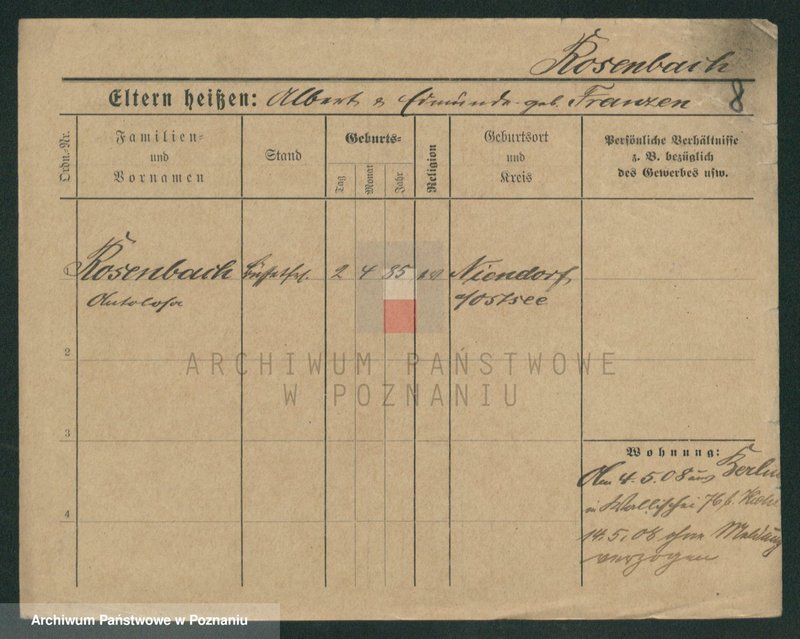 Rosenbach
Eltern heißen: Albert & Edmunde geb. Franzen
8
Ordn.-Nr.
Familien-
und
Vornamen
Stand
Geburts-
Tag
Monat
Jahr
Religion
Geburtsort
und
Kreis
Persönliche Verhältnisse
z. B. bezüglich
des Gewerbes usw.
1
Rosenbach
2 4 85 ev
Niendorf
a/Ostsee
2
ARCHIWUM PAŃSTWOWE
W POZNANIU
3
Wohnung:
Am 4.5.08 aus Berlin
in Wallischei 76 b.
14.5.08 ohne Meldung
verzogen
4
Archiwum Państwowe w Poznaniu